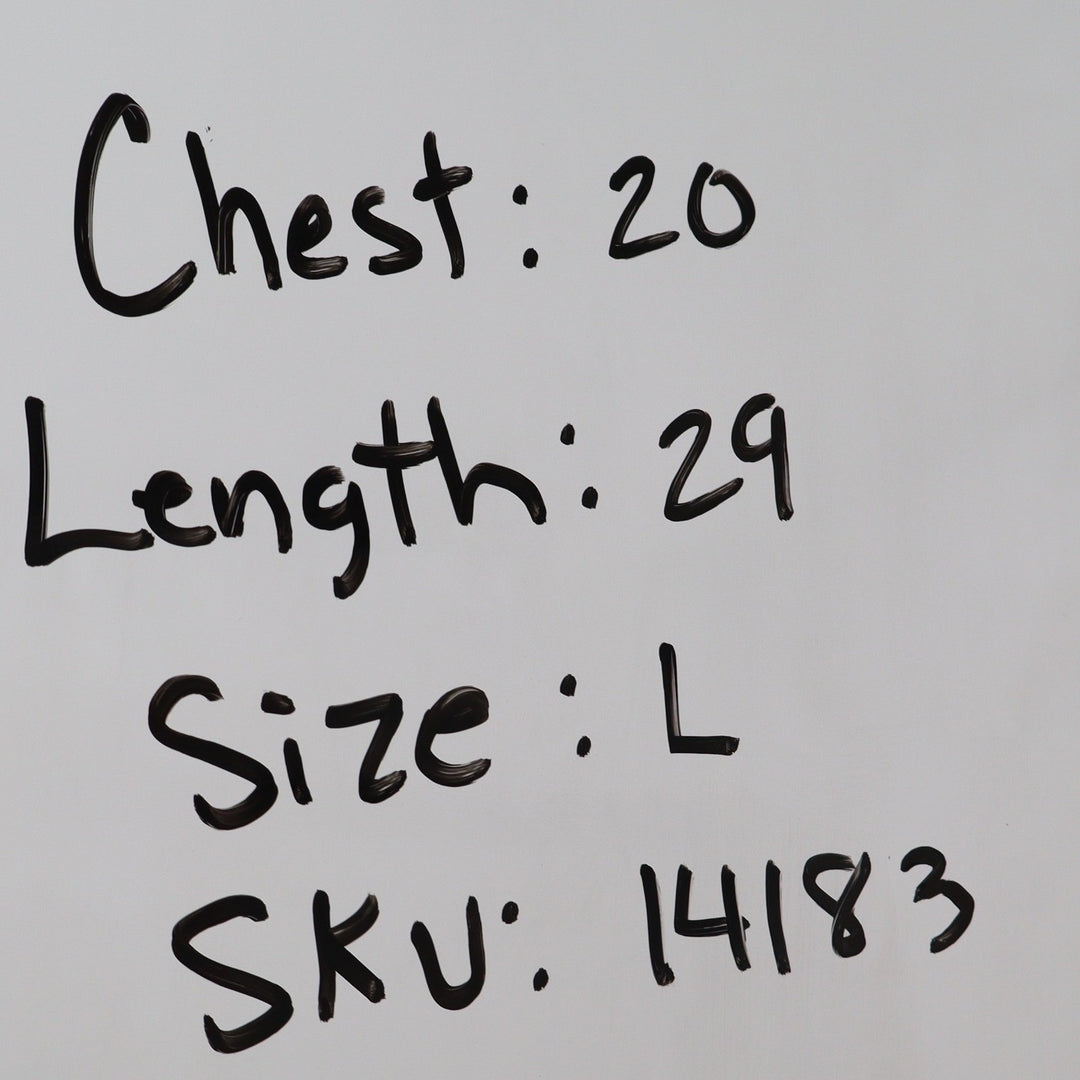 Chest: 20
Length: 29
Size: L
SKU: 14183